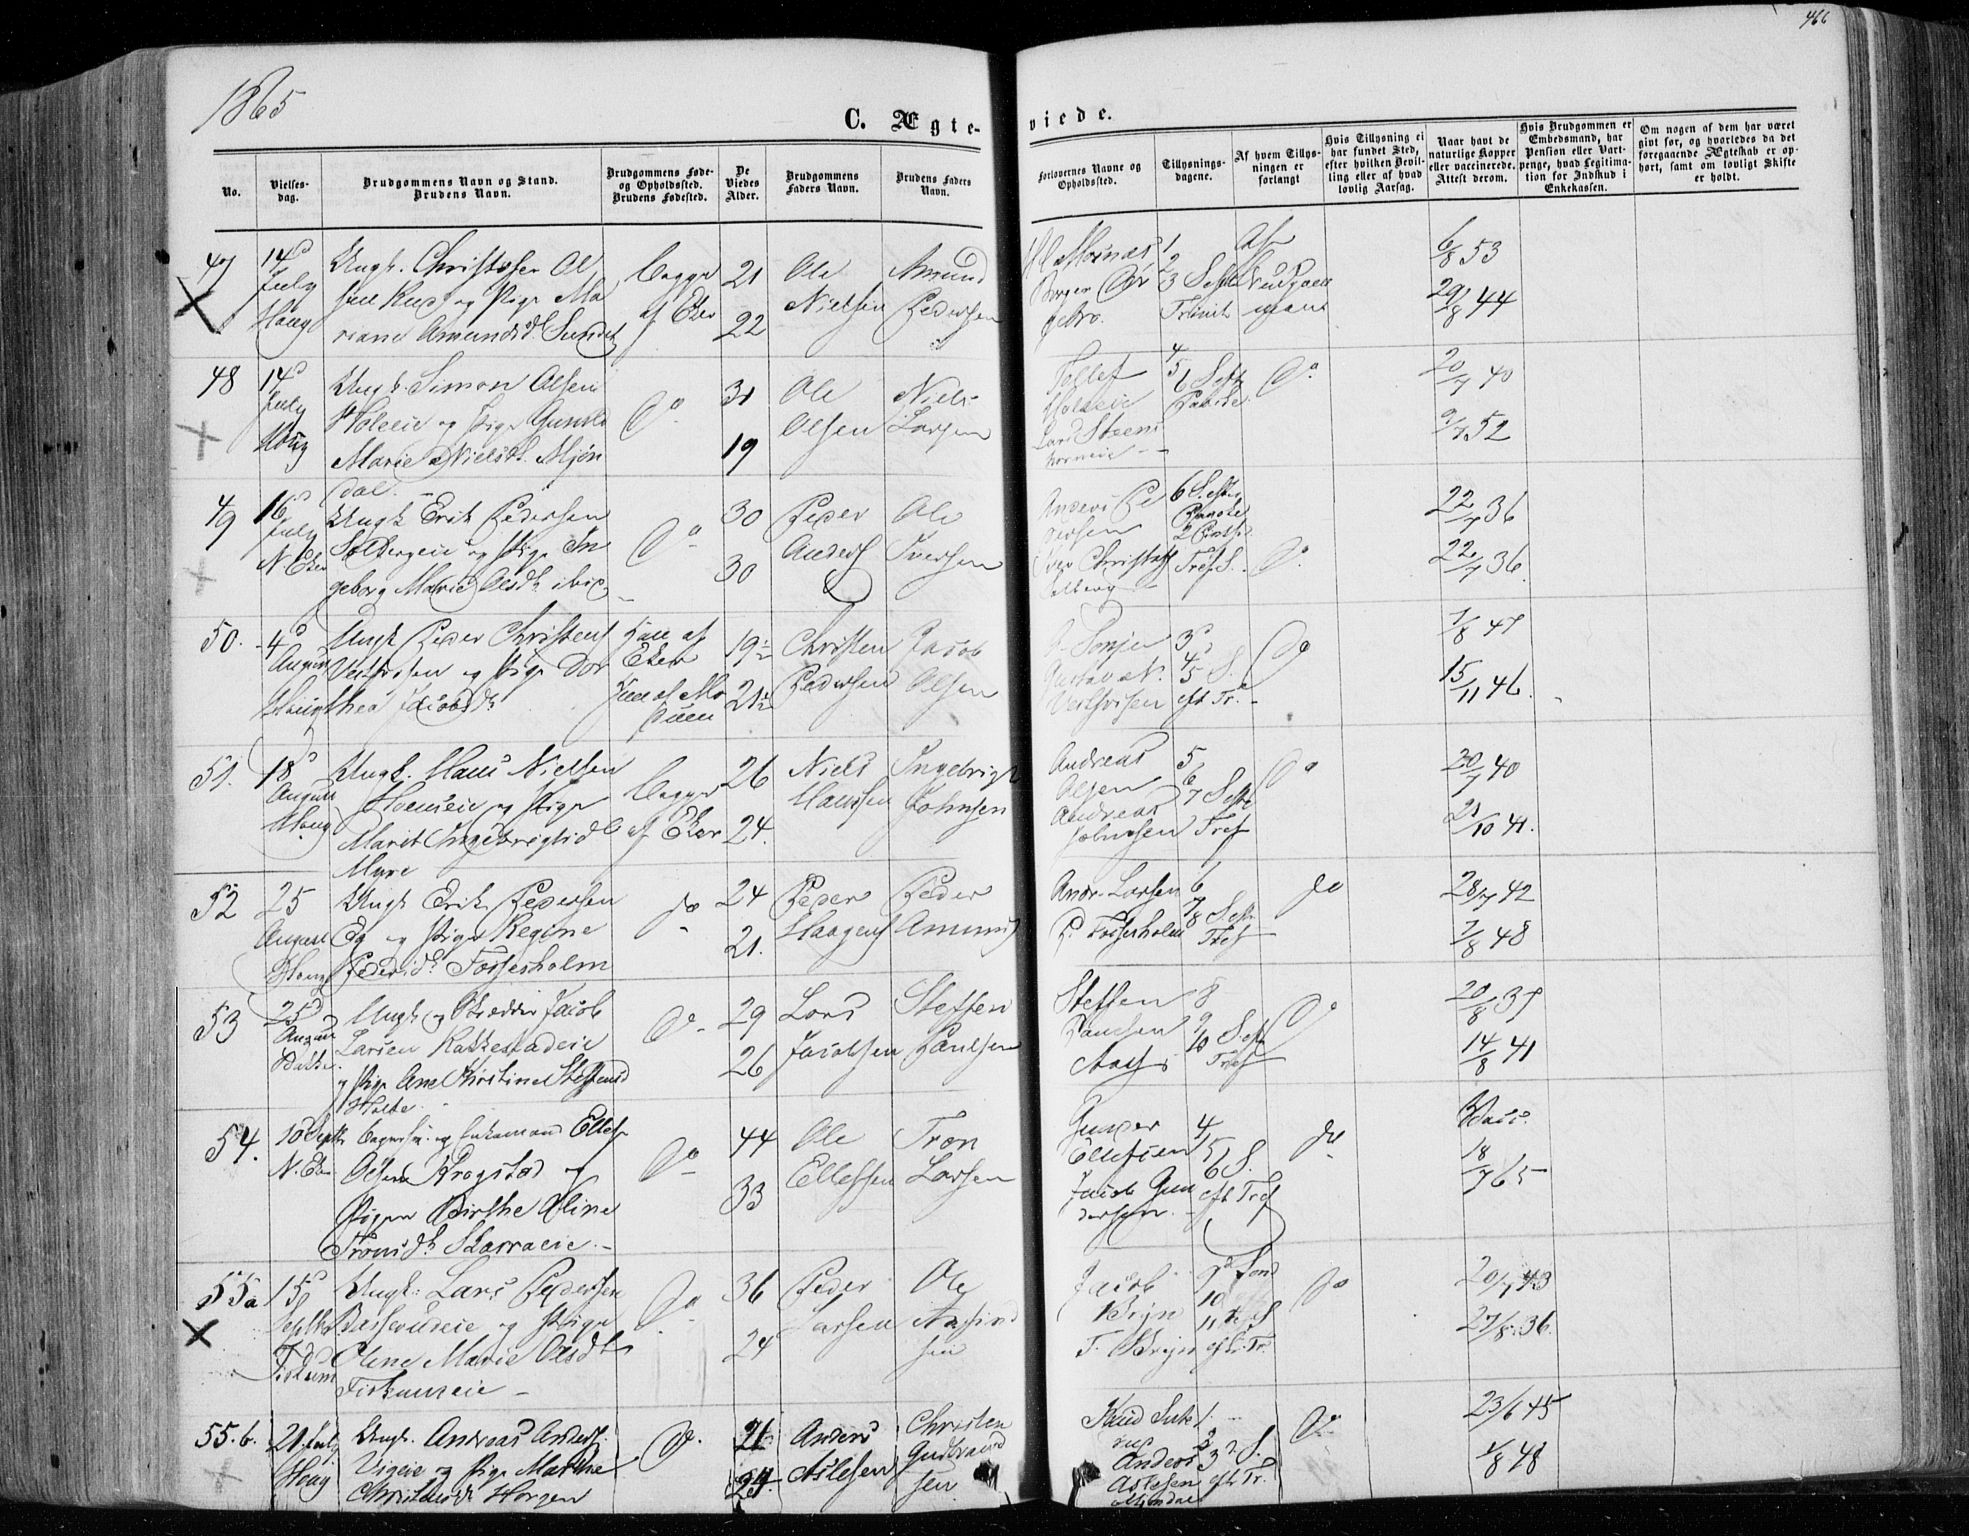 466
1865
C. Ægte-
viede.
No.
Vielses-
dag.
Brudgommens Navn og Stand.
Brudens Navn.
Brudgommens Føde-
og Opholdssted.
Brudens Fødested.
De
Viedes
Alder.
Brudgommens
Faders Navn.
Brudens Faders
Navn.
Forlovernes Navne og
Opholdssted.
Tillysnings-
dagene.
Af hvem Tillys-
ningen er
forlangt
Hvis Tillysning ei
har fundet Sted,
efter hvilken Bevil-
ling eller af hvad
lovlig Aarsag.
Naar havt de
naturlige Kopper
eller vaccinerede.
Attest derom.
Hvis Brudgommen er
Embedsmand, har
Pension eller Vart-
penge, hvad Legitima-
tion for Indskud i
Enkekassen.
Om nogen af dem har været
givt før, og hvorledes da det
foregaaende Ægteskab er op-
hørt, samt om lovligt Skifte
er holdt.
47
14d
July
Haug
Ungk. Christofer Ol
sen Rud og Pige Ma
riane Amundsd. Sundet
begge
af Eker
21
22
Ole
Nielsen
Amund
Pedersen
1
2
3 S eft
Trinit
6/8 53
29/8 44
48
14d
July
Haug
Ungk. Simon Olsen
Holeeie og Pige Gunild
Marie Nielsd. Mjøn
dal.
Do
31
19
Ole
Olsen
Niels
Larsen
Tollef
Lars Steens
4
5
6 S eft
Do
20/7 40
9/7 52
49
16d
July
N. Eker
Ungk Erik Pedersen
Solbergeie og Pige In
geborg Marie Olsdt ibid
Do
30
30
Peder
Anders
Ole
Iversen
Anders Pe
dersen
Iver Christofs
Solberg
6 S eft
Tref S.
Do
22/7 36
22/7 36.
50.
4d
August
Haug
Ungk Peder Christens
Vestfosen og Pige Dor
thea Jacobsdt
Han af
Eker
Hun af Mo
dum
19½
21½
Christen
Pedersen
Jacob
Olsen
Gustav N.
Vestfosen
3d
4d
5 S.
eft Tr.
Do
7/8 47
15/11 46.
51.
18d
August
Haug
Ungk. Hans Nielsen
Hoenseie og Pige
Marit Ingebrigtsd
Myre
begge
af Eker
26
24.
Niels
Hansen
Ingebrigt
Johnsen
Andreas
Olsen
Andreas
Johnsen
5
6
7 S eft
Tref
Do
20/7 40
21/10 41.
52
25
August
Haug
Ungk Erik Pedersen
Eg og Pige Regine
Pedersdt Fossesholm
do
24
21.
Peder
Haagens
Peder
Amunds
Andr. Larsen
P. Fossesholm
6
7
8 S eft
Tref
do
28/7 42
7/8 48
53
25d
August
Bakke.
Ungk og Skrædder Jacob
Larsen Kakkestadeie
og Pige Ane Kirstine Steffensd
Holte.
Do
29
26
Lars
Jacobsen
Steffen
Paulsen
Steffen
Paulsen
Aas
8
9
10 S eft
Tref
Do
20/8 37
14/8 41
54.
10 Septb
N. Eker
Enkemand Ellef
Olsen Krogstad og
Pigen Birthe Oline
Tronsdt Skarraeie.
Do
44
33
Ole
Ellefsen
Tron
Larsen
Gunder
Ellefsen
Jacob Gun
dersen.
4
5
6 S.
eft Tref
do
Vacc.
18/7 65
55a
15d
Septbr
Fiskum
Ungk. Lars Pedersen
Bassebudeie og Pige
Oline Marie Olsdt
Fiskumeie
Do
36
24
Peder
Larsen
Ole
Amund
sen
Jacob
Bryn
T. Bryn
9d Sønd
10
11 S
eft Tr.
Do
20/7 43
27/8 36.
55.b.
21. July
Haug
Ungk. Andreas Anders.
Vigeie og Pige Marthe
Christensdt Horgen
Do.
21
24
Anders
Aslesen
Christen
Gudbrand
sen
Knud
Anders
Aslesen
1.
2
3d S.
eft Tr.
Do
23/6 45
1/8 48